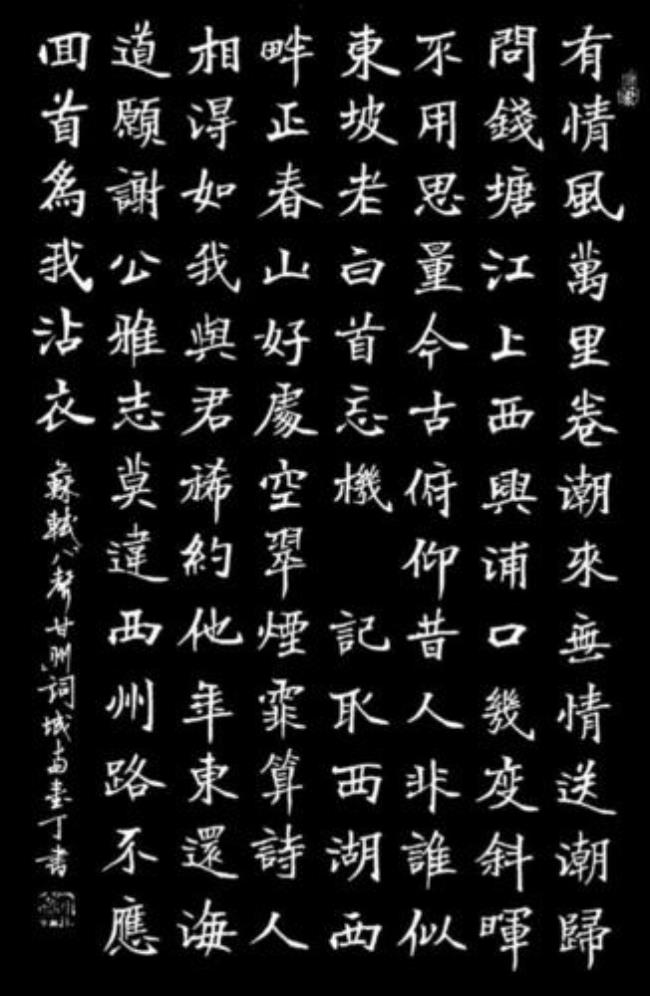 有情風萬里卷潮來無情送潮歸
問錢塘江上西興浦口幾度斜暉
不用思量今古俯仰昔人非誰似
東坡老白首忘機 記取西湖西
畔正春山好處空翠煙霏算詩人
相得如我與君稀約他年東還海
道願謝公雅志莫違西州路不應
回首為我沾衣 蘇軾八聲甘州詞城南丁書